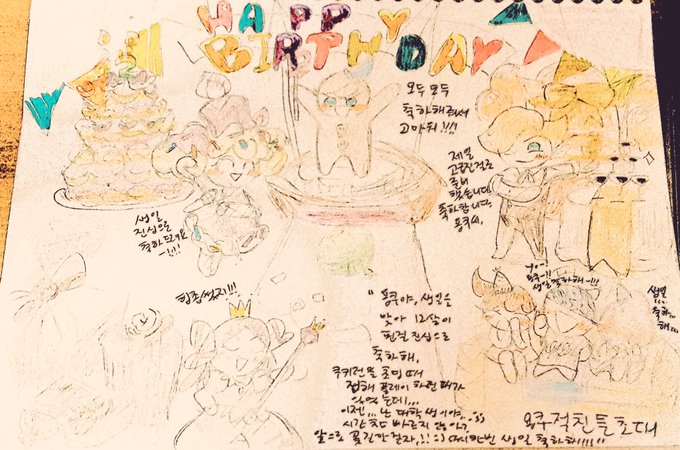 HAPPY
BIRTHDAY
모두 모두
축하해줘서
고마워!!!!
제일
고급진걸로
준비
했습니다
축하합니다,
용쿠씨,
생일
진심으로
축하드려요
~!!!!
힘좀썼지!!!
Yo~!
용쿠~!!
생일 축하해~!!!
생일
축하
해...
"용쿠야, 생일을
맞아 12살이
된걸 진심으로
축하해,
쿠키런을 초딩때
접해 플레이 하던 때가
있었는데...
이젠... 난 대학생이야..
시간 참 빠르지 않아?
앞으로 꽃길만 걷자,!! :) 다시한번 생일 축하해!!!!"
용쿠적친들초대